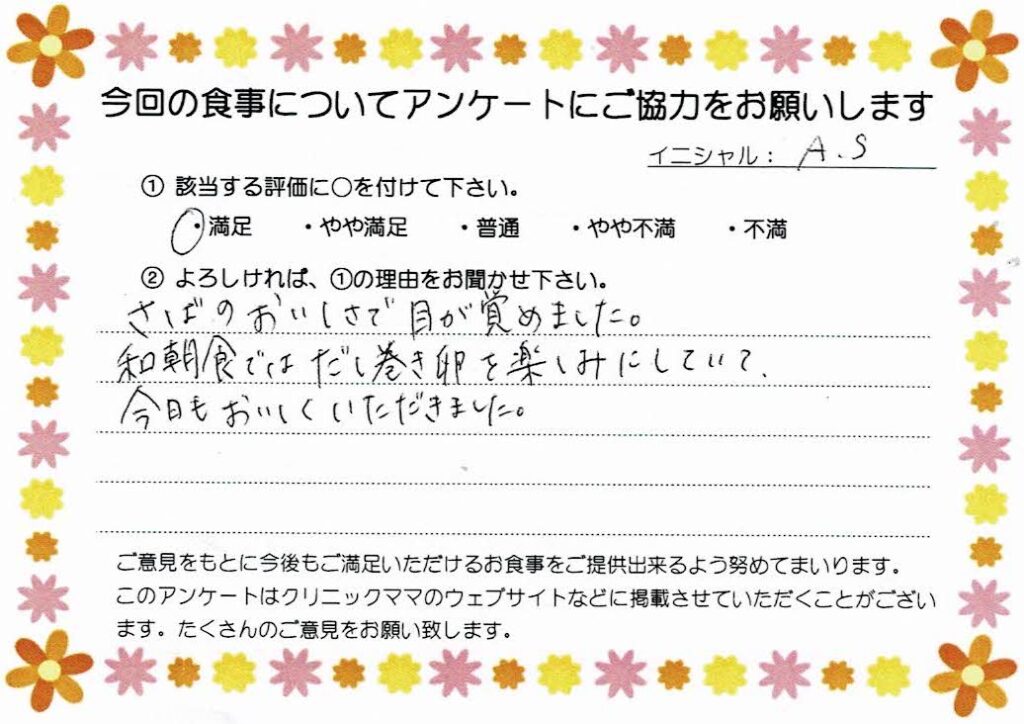 今回の食事についてアンケートにご協力をお願いします
イニシャル： A.S
① 該当する評価に○を付けて下さい。
・満足 ・やや満足 ・普通 ・やや不満 ・不満
② よろしければ、①の理由をお聞かせ下さい。
さばのおいしさで目が覚めました。
和朝食ではだし巻き卵を楽しみにしていて、
今日もおいしくいただきました。
ご意見をもとに今後もご満足いただけるお食事をご提供出来るよう努めてまいります。
このアンケートはクリニックママのウェブサイトなどに掲載させていただくことがござい
ます。たくさんのご意見をお願い致します。